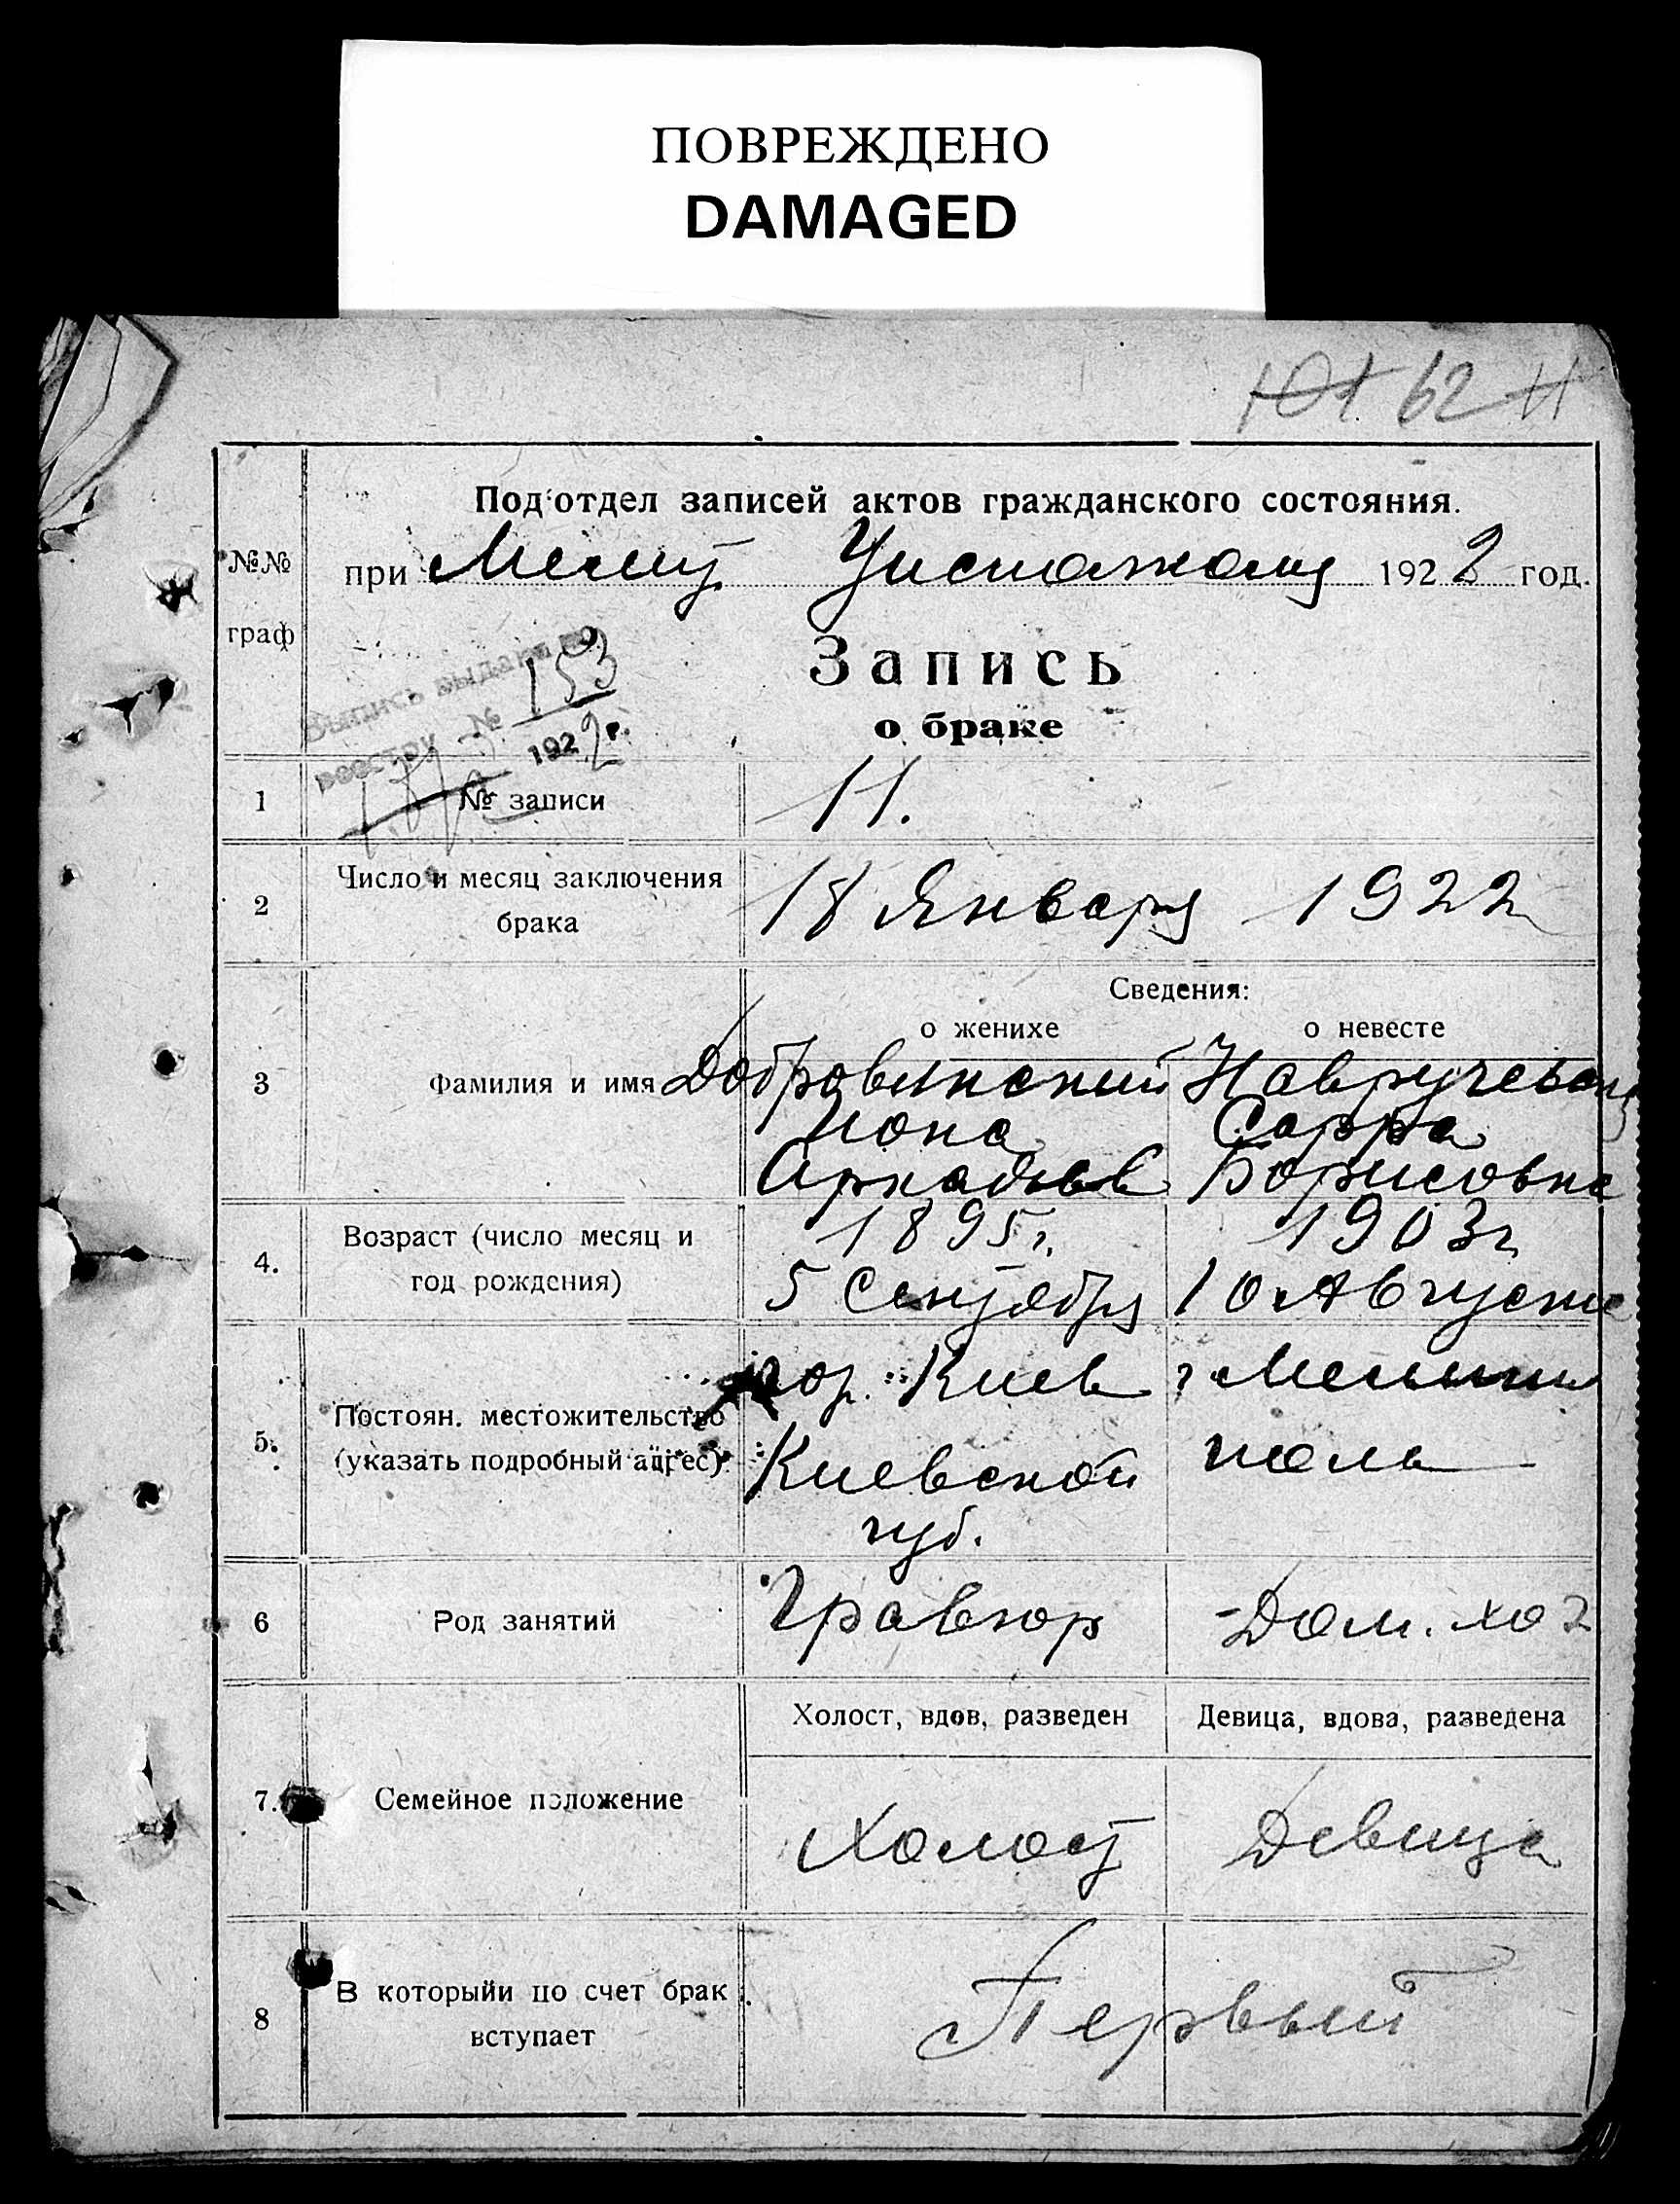 ПОВРЕЖДЕНО
DAMAGED
62
Под'отдел записей актов гражданского состояния.
№№
при Мелит Уисполкому 1922 год.
граф
Запись
о браке
Выпись выдана по
реестру № 153
1922 г.
1 № записи 11.
2 Число и месяц заключения брака 18 Января 1922
Сведения:
о женихе о невесте
3 Фамилия и имя Добровинский
Иона Сарра
Аркадьев Борисовна
4. Возраст (число месяц и 1895 г. 1903 г
год рождения) 5 Сентября 10 Августа
гор. Киев г. Мелито
5. Постоян. местожительство
(указать подробный адрес) Киевской поль
губ.
6 Род занятий Гравюр Дом. хоз
Холост, вдов, разведен Девица, вдова, разведена
7. Семейное положение Холост Девица
8 В которыйи по счет брак Первый
вступает